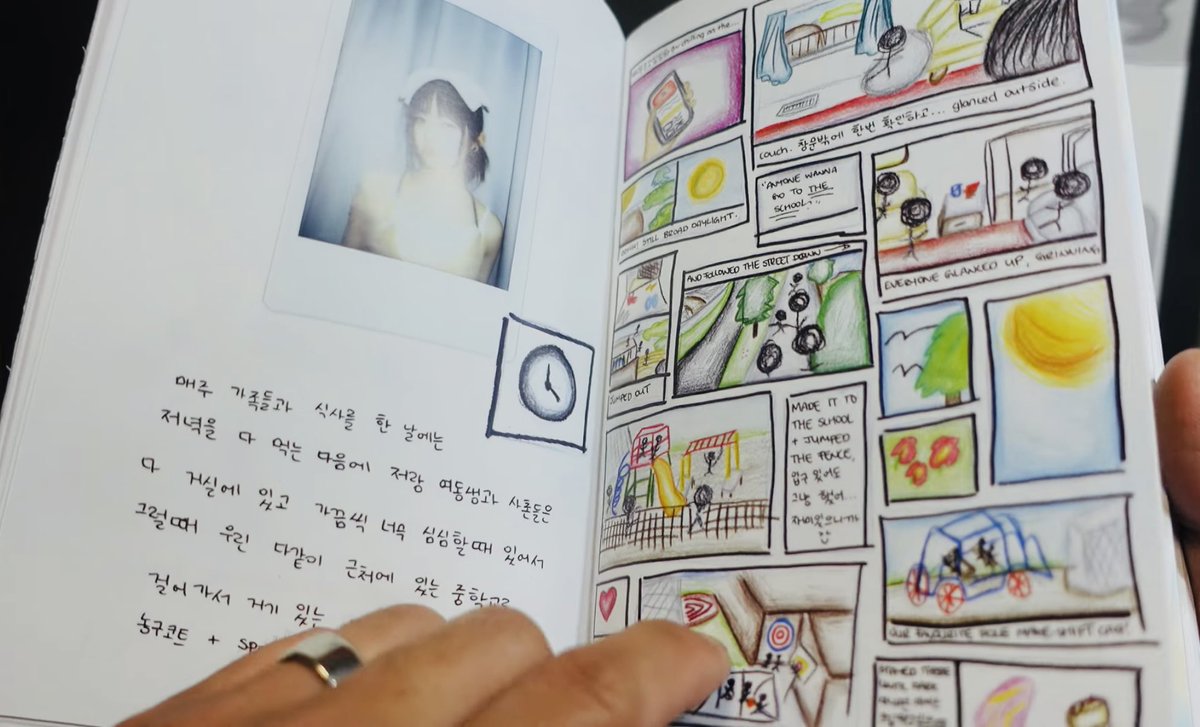 매주 가족들과 식사를 한 날에는
저녁을 다 먹는 다음에 저랑 여동생과 사촌들은
다 거실에 있고 가끔씩 너무 심심할때 있어서
그럴때 우린 다같이 근처에 있는 중학교로
걸어가서 거기 있는
농구코트 + sp
chilling on the...
couch. 창문밖에 한번 확인하고... glanced outside.
STILL BROAD DAYLIGHT.
"ANYONE WANNA
GO TO THE
SCHOOL?"
EVERYONE GLANCED UP, GRINNING
JUMPED OUT
AND FOLLOWED THE STREET DOWN
MADE IT TO
THE SCHOOL
+ JUMPED
THE FENCE,
입구 있어도
그냥 했어...
재미있으니까
OUR FAVOURITE MAKE-SHIFT CAR!
STAYED THERE
UNTIL DARK